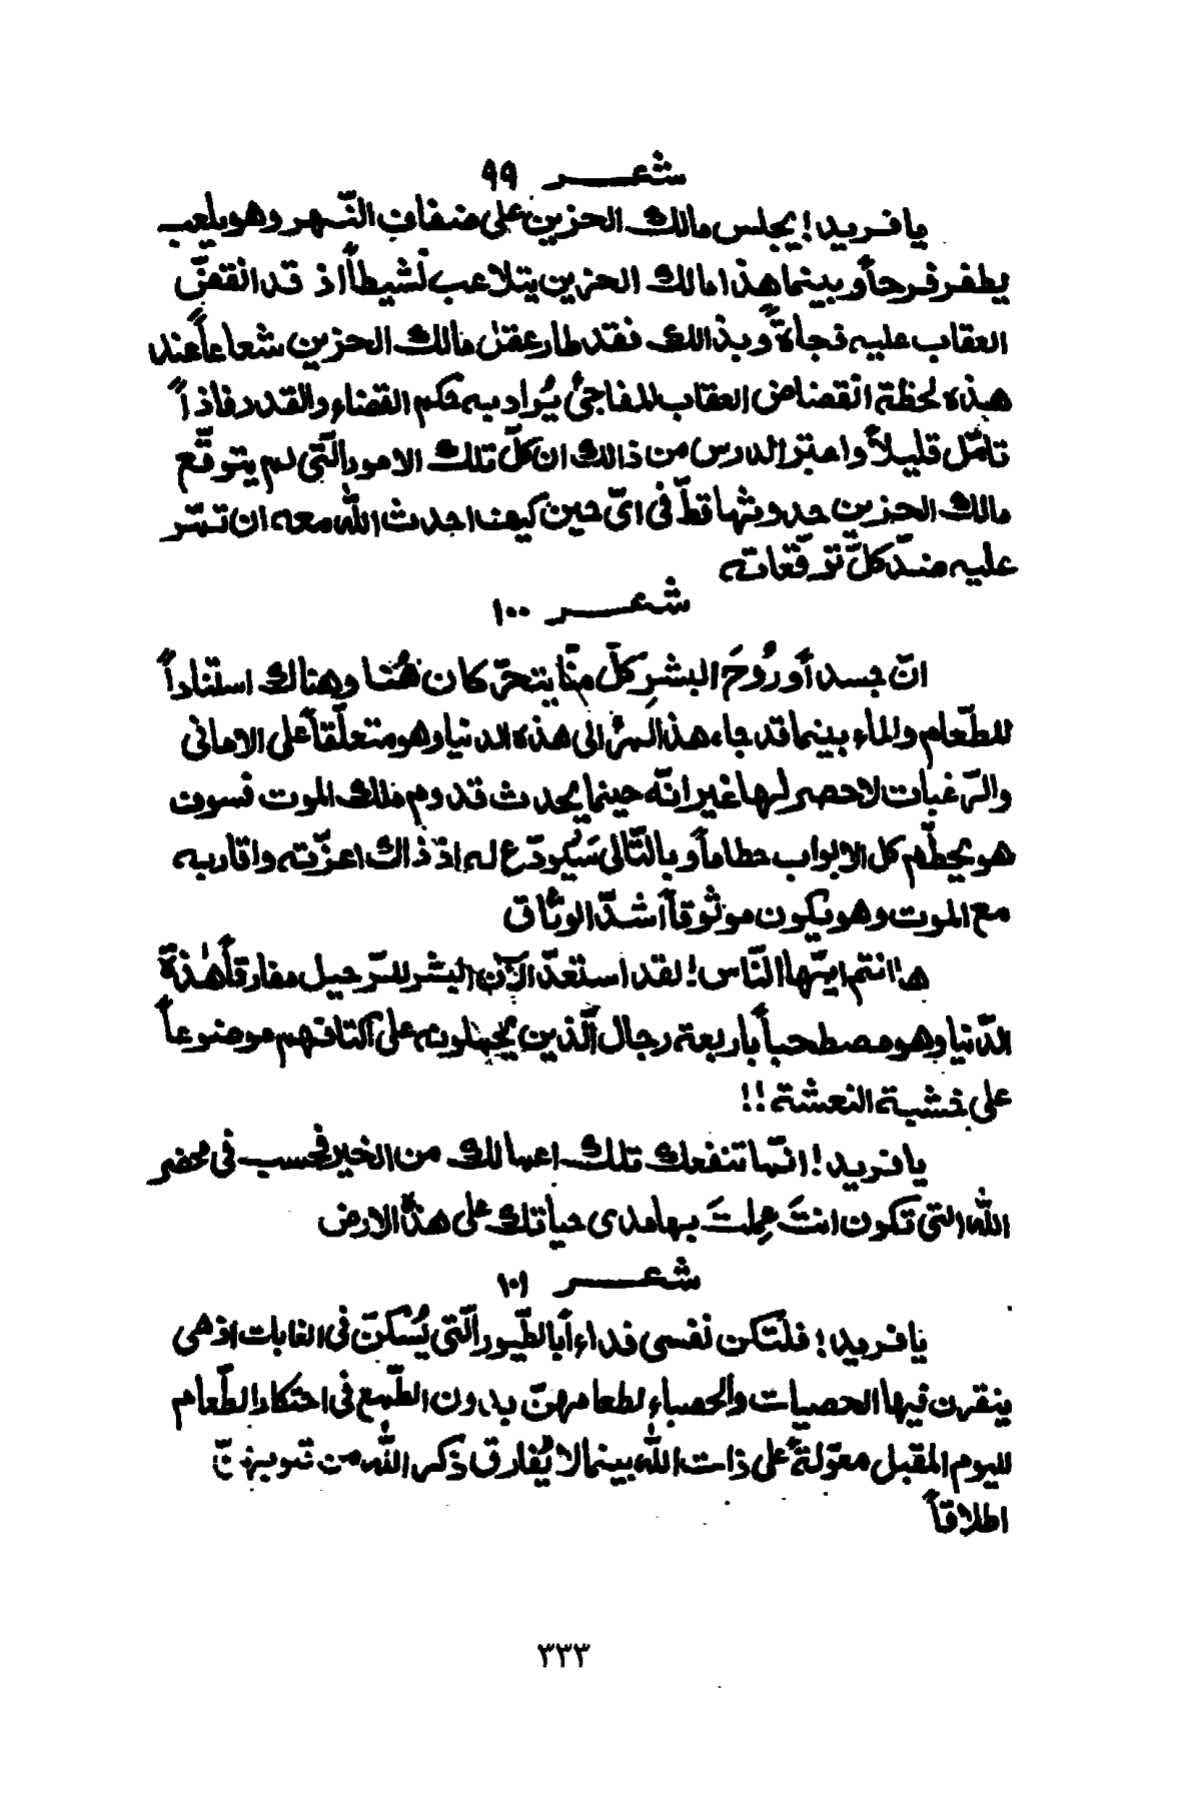 شعر ٩٩
يا فريد! يجلس مالك الحزين على ضفاف النّهر وهو يلعب
يطفر فرحاً وبينما هذا مالك الحزين يتلاعب نشيطاً اذ قد انقضّ
العقاب عليه فجاةً وبذالك فقد طار عقل مالك الحزين شعاعاً عند
هذه لحظة انقضاض العقاب المفاجئ يُراد به حكم القضاء والقدر فاذاً
تامّل قليلاً واعتبر الدرس من ذالك ان كلّ تلك الامور الّتي لم يتوقّع
مالك الحزين حدوثها قطّ فى اىّ حين كهذا احدث الله معه ان تمّر
عليه ضدّ كلّ توقّعاته
شعر ١٠٠
انّ جسداً ورُوحَ البشرِ كلّ منّا يتحرّكان هُنا وهنالك استناداً
للطّعام والماء بينما قد جاء هذا المرئ الى هذه الدنيا وهو متعلّقاً على الامانى
والرّغبات لا حصر لها غير انّه حينما يحدث قدوم ملك الموت فسوف
هو يحطّم كل الابواب حطاماً وبالتّالى سَيُودّع له اذ ذاك اعزّته واقاربه
مع الموت وهو يكون موثوقاً اشدّ الوثاق
ها انتم ايّها النّاس! لقد استعدّ الآن البشر للرّحيل مفارقاً هٰذة
الدّنيا وهو مصطحباً باربعة رجال الّذين يحملونه على اكتافهم موضوعاً
على خشبة النعشة!!
يا فريد! انّما تنفعك تلك اعمالك من الخير فحسب فى محضر
الله التى تكون انتَ عملتَ بها مدى حياتك على هذا الارض
شعر ١٠١
يا فريد! فلتكن نفسى فداءاً بالطّيور الّتى يُسْكنّ فى الغابات اذ هى
ينقرن فيها الحصيات والحصباء لطعامهنّ بدون الطّمع فى احتكار الطّعام
لليوم المقبل معوّلةً على ذات الله بينما لا يُفارق ذكر الله من
اطلاقاً
٣٣٣